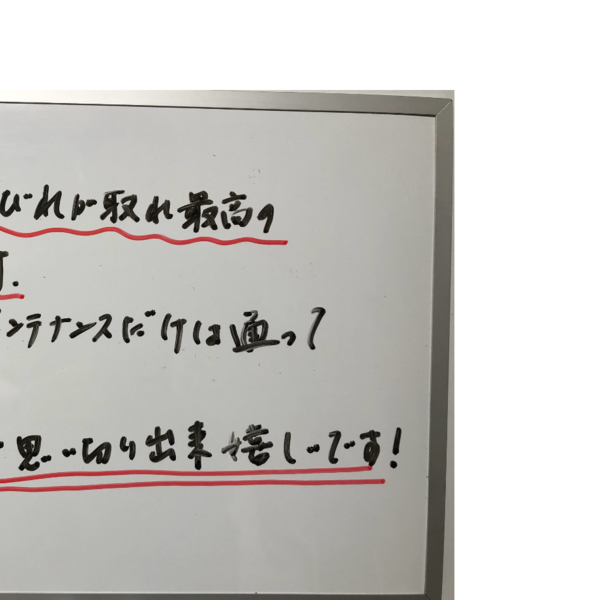 びれが取れ最高の
す.
ンテナンスだけは通って
思い切り出来嬉しいです!